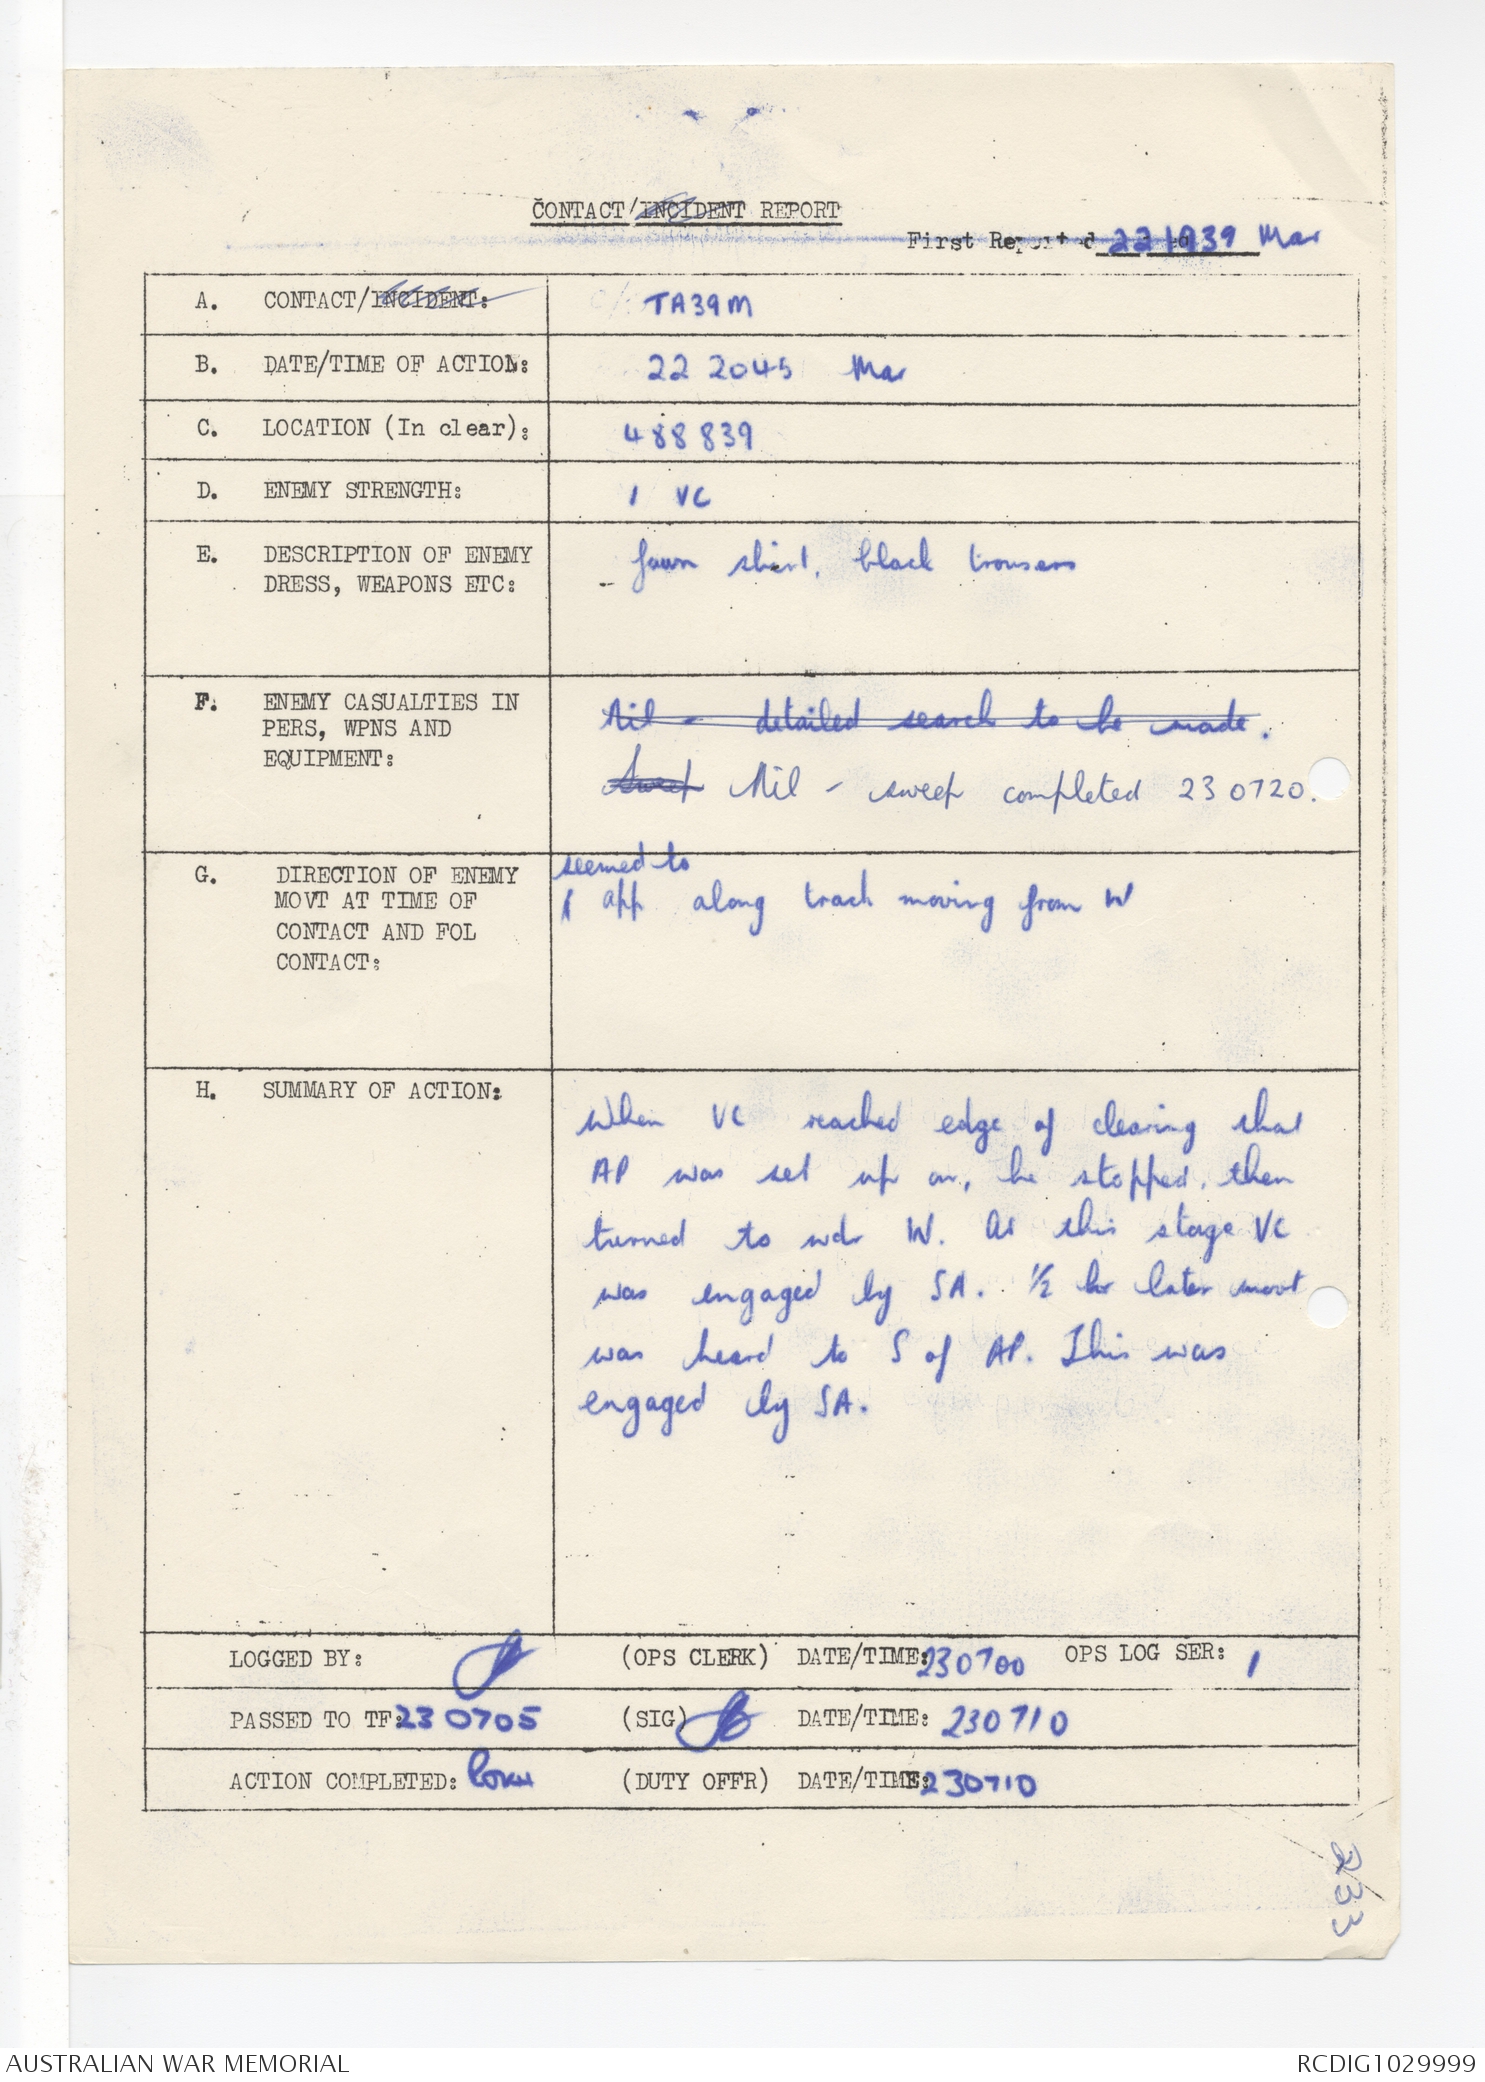 CONTACT/INCIDENT REPORT
First Reported 221939 Mar
A. CONTACT/INCIDENT: TA39M
B. DATE/TIME OF ACTION: 22 2045 Mar
C. LOCATION (In clear): 488839
D. ENEMY STRENGTH: 1 VC
E. DESCRIPTION OF ENEMY
DRESS, WEAPONS ETC:
fawn shirt, black trousers
F. ENEMY CASUALTIES IN
PERS, WPNS AND
EQUIPMENT:
Nil - detailed search to be made.
Sweep Nil - sweep completed 230720.
G. DIRECTION OF ENEMY
MOVT AT TIME OF
CONTACT AND FOL
CONTACT:
seemed to
app along track moving from W
H. SUMMARY OF ACTION:
When VC reached edge of clearing that
AP was set up on, he stopped, then
turned to wdr W. At this stage VC
was engaged by SA. 1/2 hr later movt
was heard to S of AP. This was
engaged by SA.
LOGGED BY: (OPS CLERK) DATE/TIME: 230700 OPS LOG SER: 1
PASSED TO TF: 230705 (SIG) DATE/TIME: 230710
ACTION COMPLETED: (DUTY OFFR) DATE/TIME: 230710
233
AUSTRALIAN WAR MEMORIAL
RCDIG1029999